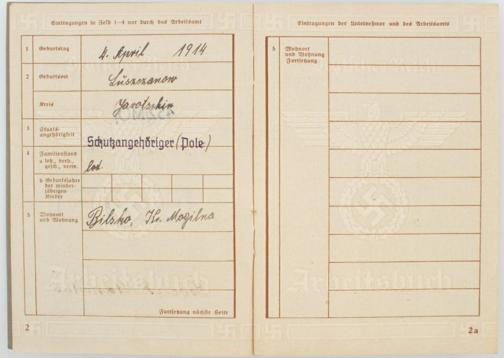 Eintragungen in Feld 1–4 nur durch das Arbeitsamt
1 Geburtstag 4. April 1914
2 Geburtsort Luszczanow
Kreis Jarotschin
3 Staats-
angehörigkeit Schutzangehöriger (Pole)
4 Familienstand
led.
b Geburtsjahre
der minder-
jährigen
Kinder
5 Wohnort
und Wohnung Bilsko, Kr. Mogilno
Fortsetzung nächste Seite
2
Eintragungen der Unternehmer und des Arbeitsamts
5 Wohnort
und Wohnung
Fortsetzung
Arbeitsbuch
Arbeitsbuch
2a